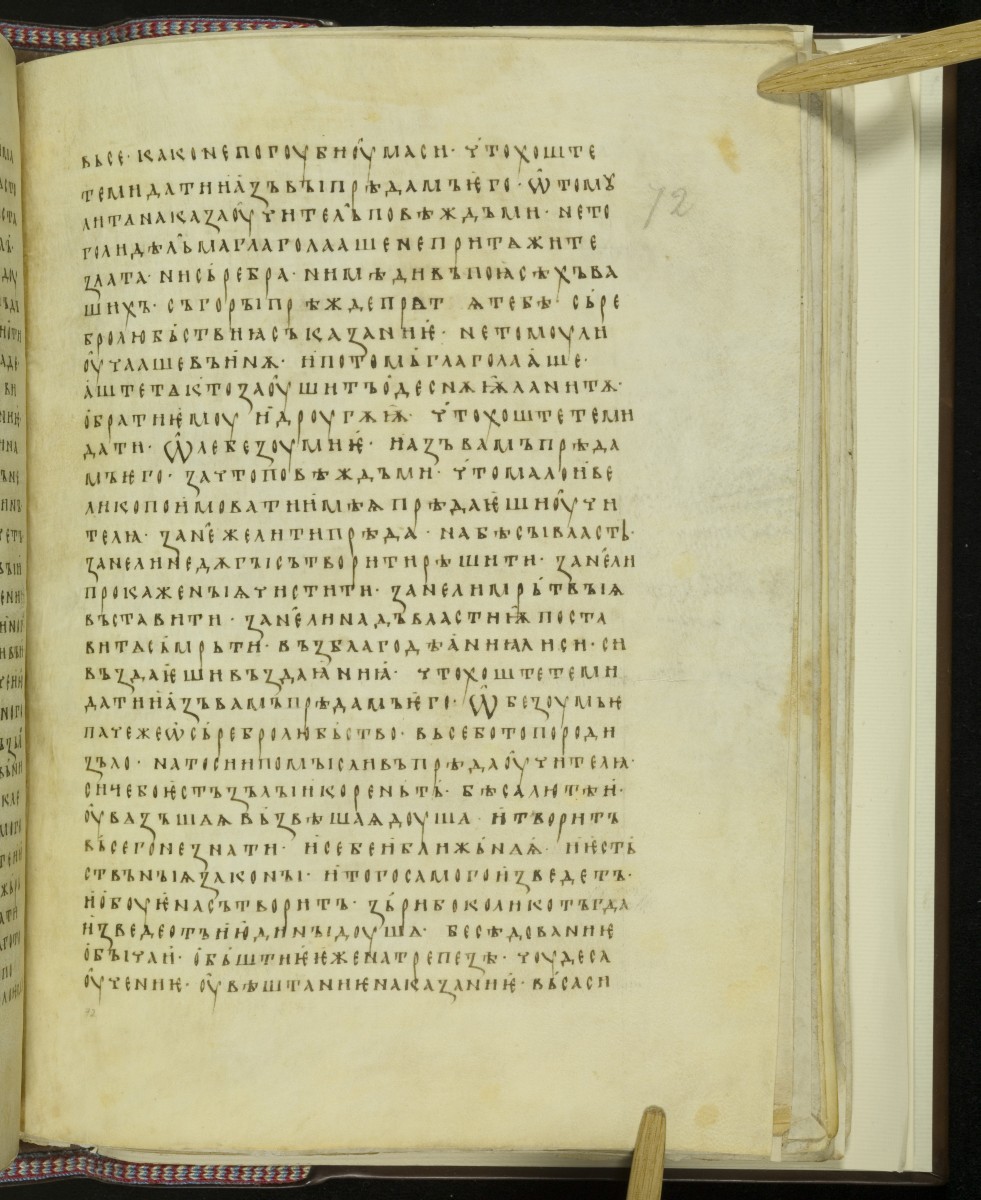 вьсе· како не погоуби оумаси· чтохоште
теми дати и азъ вы прѣдамъ ѥго· ѡ томоу
ли та наказа оучитель повѣждъ ми· не то
го ли дѣльма глаголааше не притѧжите
злата· ни сьребра· ни мѣди въ поꙗсѣхъ ва
шихъ· съгоры прѣжде
бролюбьствиꙗ съказаниѥ· не томоу ли
оучааше въиноу· и потомь глаголааше·
аште тѧ кто заоушитъ о десноуѭ ланитѫ·
обрати ѥмоу и дроугѫѭ· чтохоштете ми
дати· ѡле безоумиѥ· и азъ вамъ прѣда
мъ ѥго· за что повѣждъ ми· что мало и ве
лико поимовати имѣꙗ прѣдаѥши оучи
телꙗ· зане же ли ти прѣда· на бѣсы власть·
зане ли недѫгы сътвори ти рѣшити· зане ли
прокаженыѧ чистити· зане ли мрьтвыѧ
въставити· зане ли надъ властиѭ поста
ви тѧ съмрьти· въз благодѣꙗниꙗ ли си· си
въздаѥши въздаꙗниꙗ· чтохоштете ми
дати и азъ вамъ прѣдамъ ѥго· ѡ безоумьѥ
паче же ѡ сьребролюбьство· вьсе бо то породи
зъло· на то си и помысливъ прѣда оучителꙗ·
сиче бо ѥстъ зълыи корень тъ· бѣса лютѣи·
оувазъшаꙗ възвѣшаꙗ доуша· и творитъ
вьсего не знати· и себе и ближьнꙗꙗ· и ѥсть
ствьныѧ законы· и того самого изведетъ·
и обоуꙗна сътворитъ· зьри бо колико тъгда
изведе отъ июдины доушѧ· бесѣдованиѥ
обычаи· обьштиѥ ѥже на трепезѣ· чоудеса
оучениѥ· оувѣштаниѥ наказаниѥ· вьса си
72